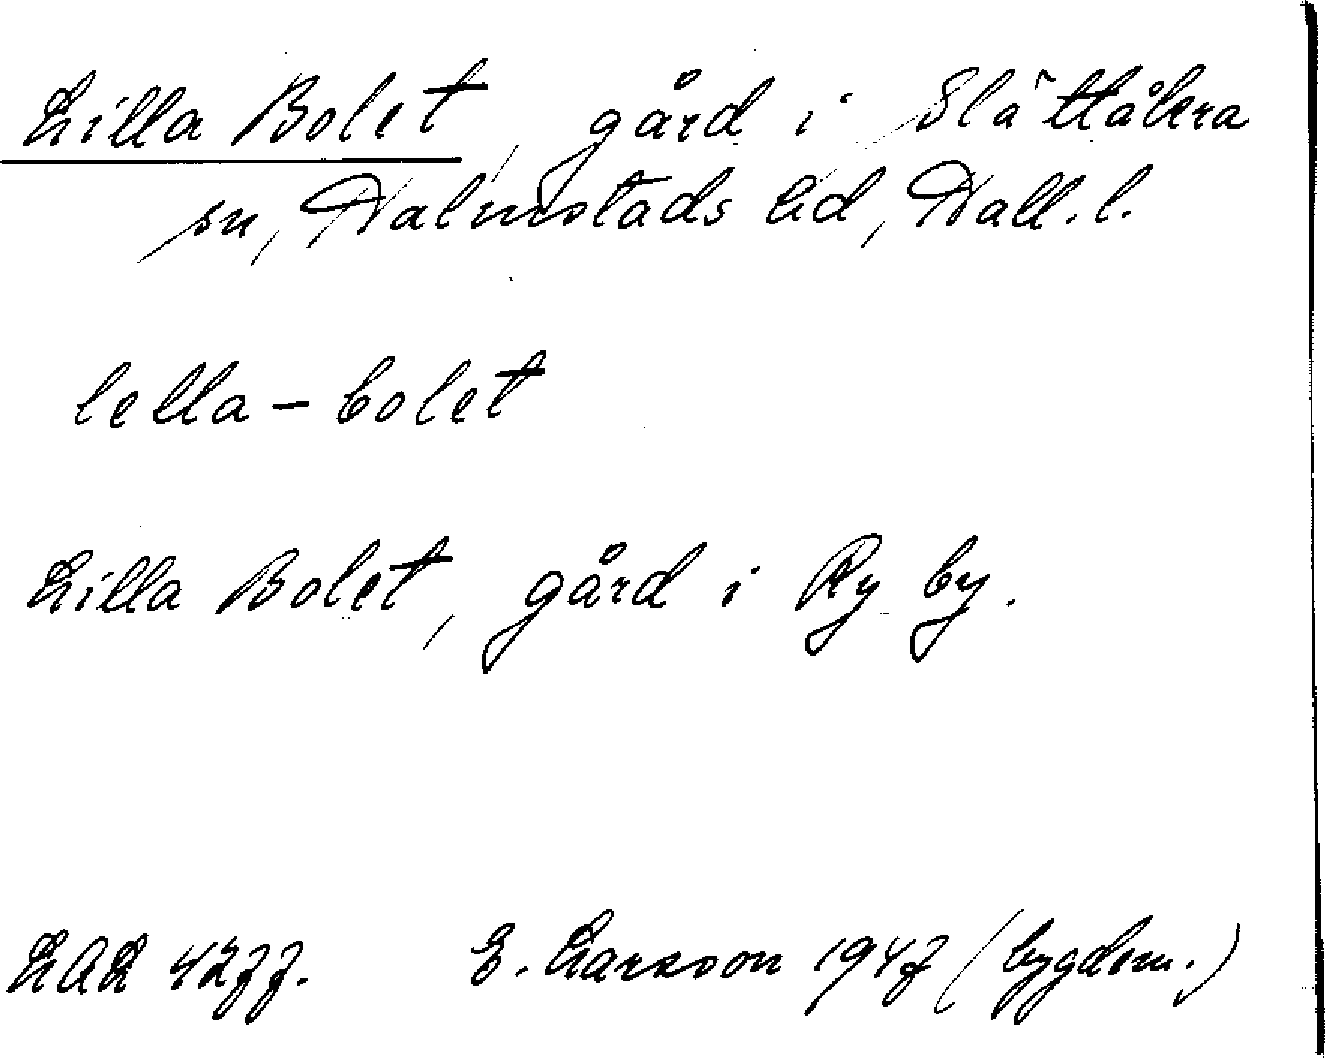 Lilla Bolet, gård i Slättåkra
sn, Halmstads hd, Hall. l.
lella-bolet
Lilla Bolet, gård i Ry by.
E. Larsson 1947 (bygdem.)